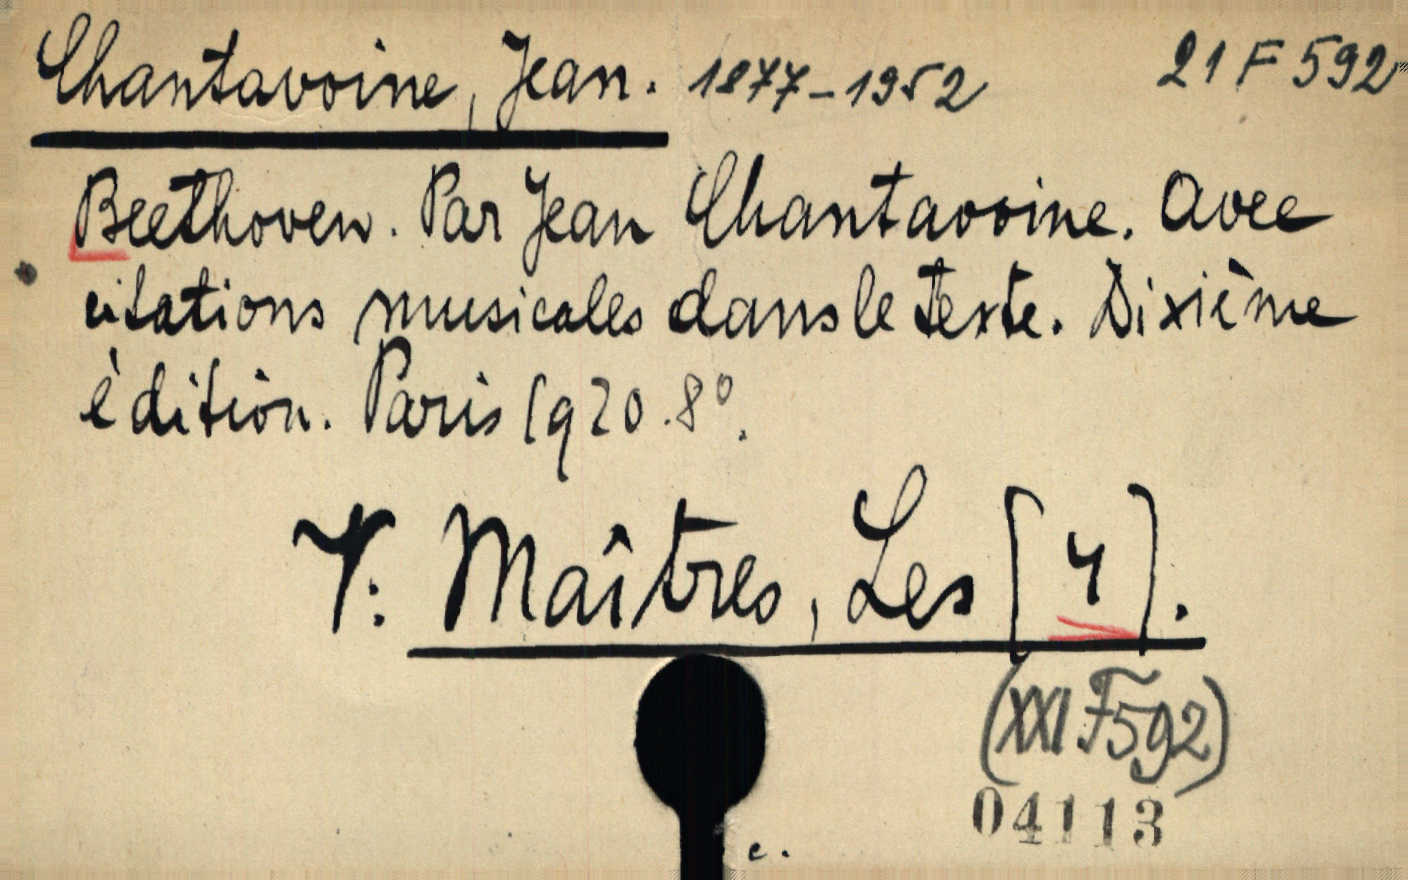 Chantavoine, Jean. 1877-1952 21 F 592
Beethoven. Par Jean Chantavoine. Avec
citations musicales dans le texte. Dixième
èdition. Paris 1920. 8º.
V: Maîtres, Les [4].
(XXI F592)
04113
c.